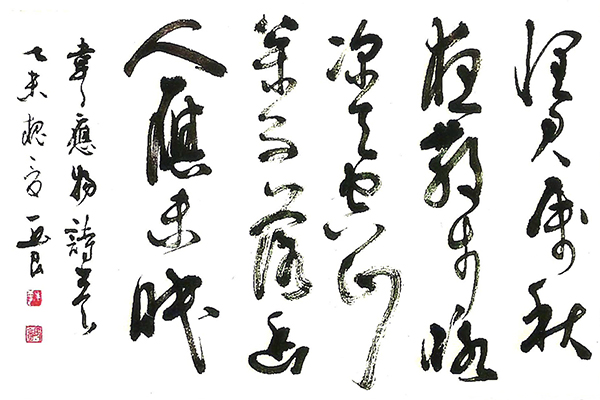 懷君屬秋
夜散步詠
涼天空山
松子落幽
人應未眠
韋應物詩
乙未